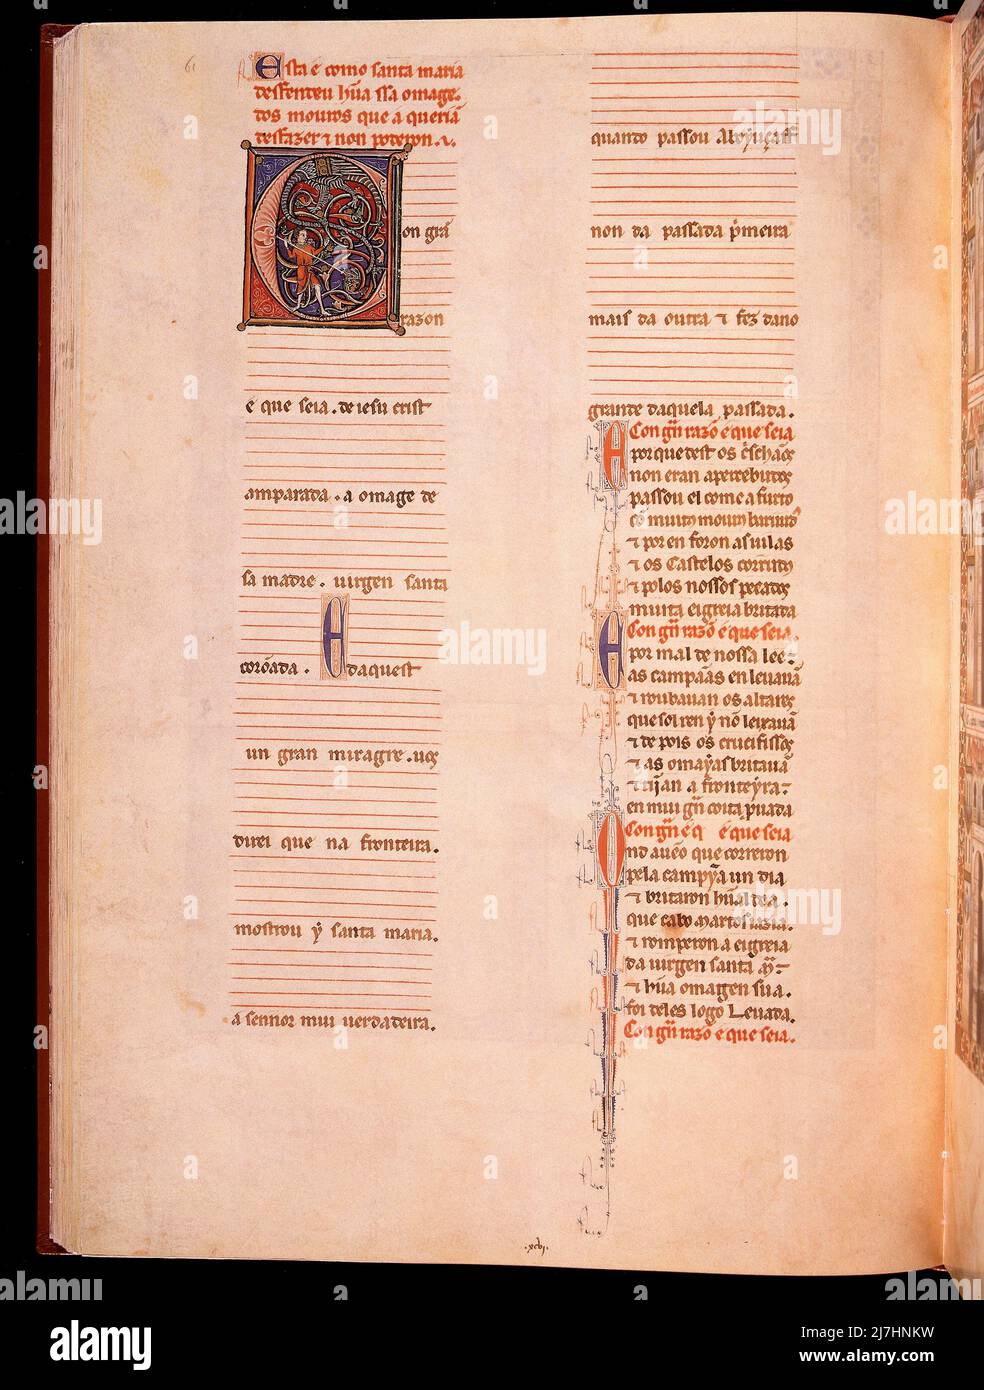 61
Esta e como santa maria
desfendeu hũa ssa omagẽ.
dos mouros que a queriã
desfazer ⁊ non poderon.
on grã
razon
e que seia. de iesu crist
amparada. a omagẽ de
sa madre. uirgen santa
corõada. E daquest
un gran miragre. uos
direi que na fronteira.
mostrou y̆ santa maria.
a sennor mui uerdadeira.
quando passou
non da passada pˢmeira
mais da outra ⁊ fez dano
grande daquela passada.
Con grã razõ e que seia
por que dest os cˢschãos
non eran apercebudos
passou el come a furto
cõ muito mouro
⁊ por en foron as uilas
⁊ os Castelos corrudo
⁊ polos nossos pecados
muita eigreia britada
Con grã razõ e que seia.
E por mal de nossa lee.
as campãas en leuauã
⁊ roubauan os altares
que sol ren y̆ nõ leixauã
⁊ depois os crucifissos
⁊ as omay̆as britauã
⁊ tijan a fronteyra.
en mui grã coita pˢuada
Con grã e q e que seia
Ond aueo que correron
pela campỹa un dia
⁊ britaron hũa aldea.
que cabo martos iazia.
⁊ romperon a eigreia
da uirgen santa Mª.
⁊ hũa omagen sua.
foi deles logo Leuada.
Con grã razõ e que seia.
.xcvj.
alamy
Image ID: 2J7HNKW
www.alamy.com